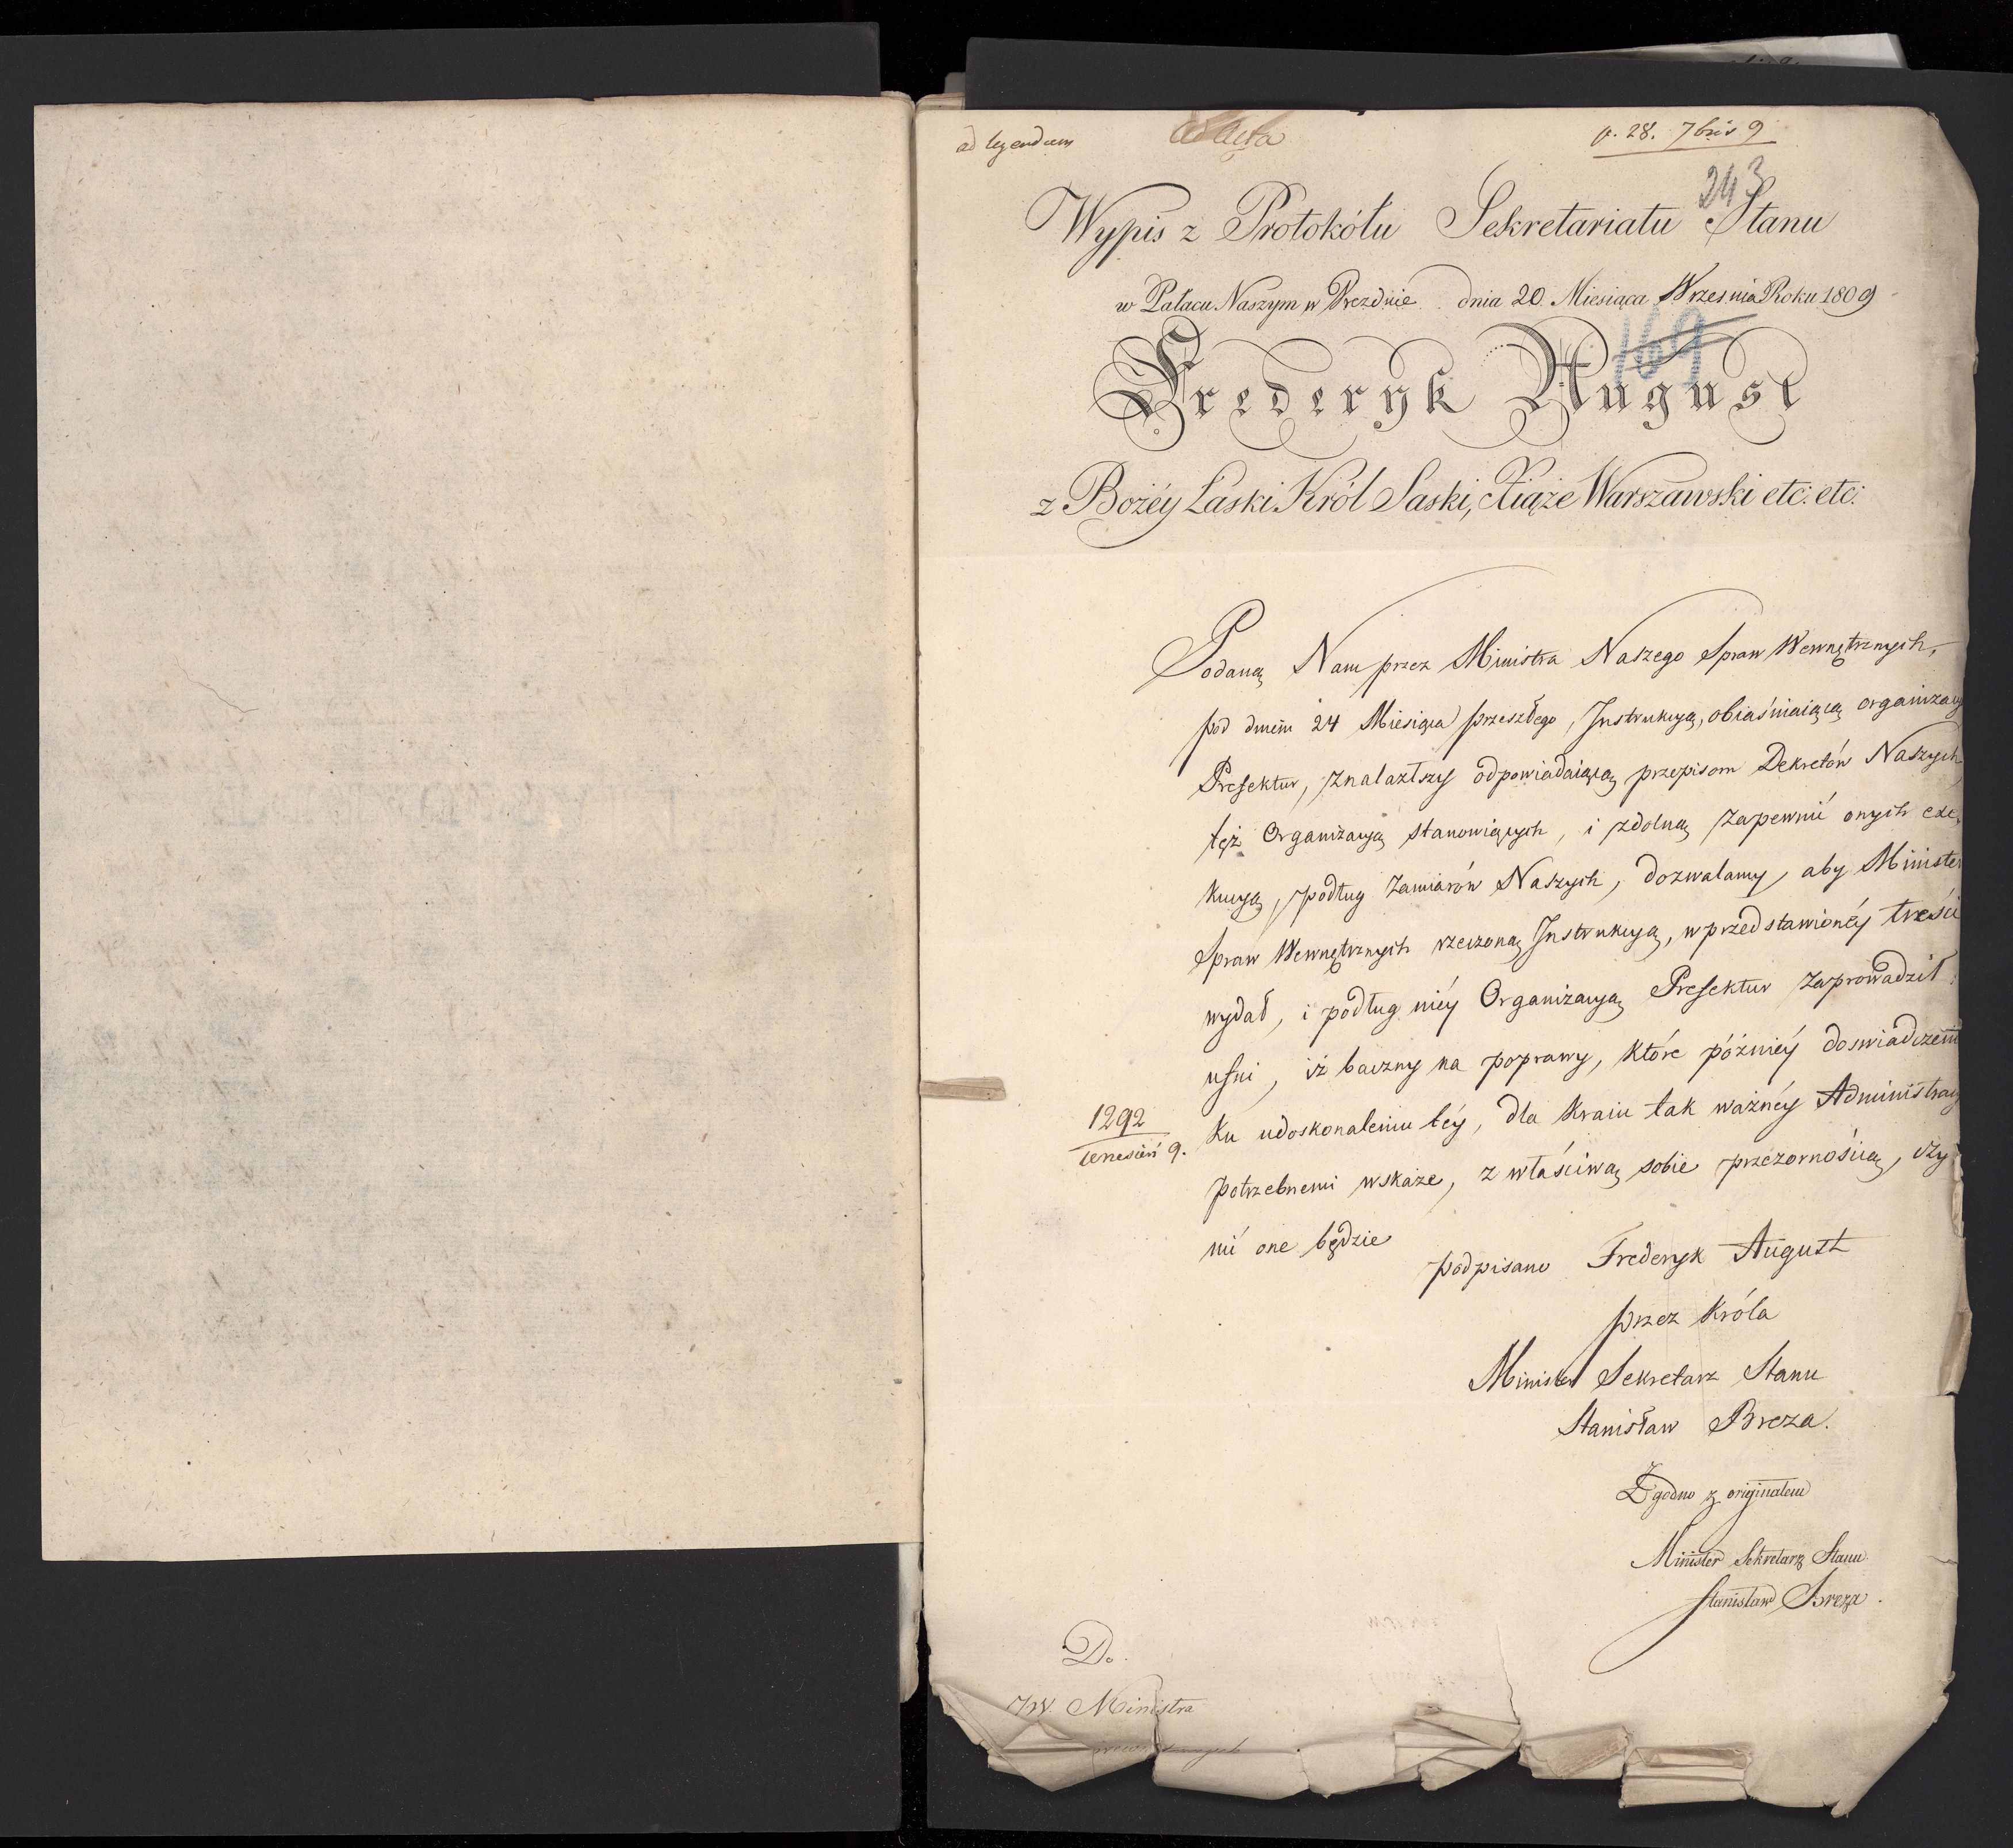 ad legendum
ad Acta
p. 28. 7bris 9
243
Wypis z Protokółu Sekretariatu Stanu
w Pałacu Naszym w Dreznie dnia 20. Miesiąca Wrzesnia Roku 1809
169
Frederyk August
z Bożéy Łaski Król Saski, Xiąże Warszawski etc: etc:
Podaną Nam przez Ministra Naszego Spraw Wewnętrznych,
pod dniem 24 Miesiąca przeszłego, Instrukcyą, obiaśniaiącą organizacyą
Prefektur, znalazłszy odpowiadaiącą przepisom Dekretów Naszych,
tęż Organizacyą stanowiących, i zdolną zapewnić onych exe,
kucyą, podług zamiarów Naszych, dozwalamy, aby Minister
Spraw Wewnętrznych rzeczoną Instrukcyą, w przedstawionéy treści
wydał, i podług niéy Organizacyą Prefektur zaprowadził:
ufni, iż baczny na poprawy, które późniéy doswiadczenie
ku udoskonaleniu téy, dla Kraiu tak ważnéy Administracyi
potrzebnemi wskaże, z właściwą sobie przezornością, czy
nić one będzie
1292
wrzesień 9.
podpisano Frederyk August
przez Króla
Minister Sekretarz Stanu
Stanisław Breza.
Zgodno z originałem
Minister Sekretarz Stanu
Stanisław Breza.
Do
JW. Ministra